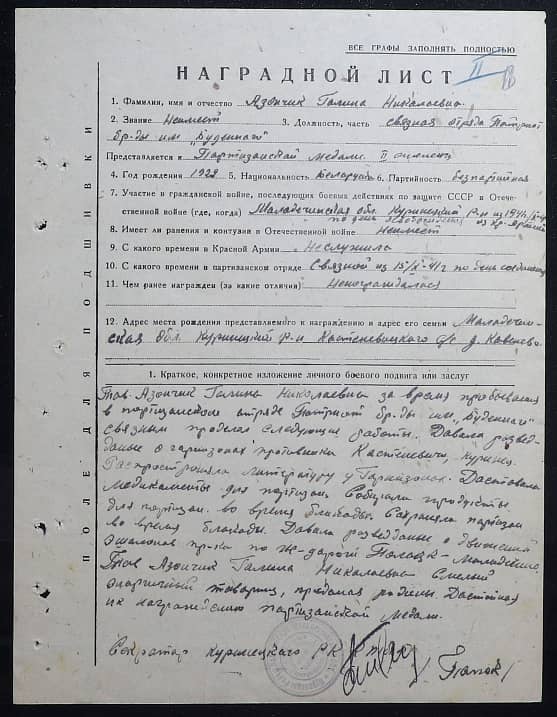 ВСЕ ГРАФЫ ЗАПОЛНЯТЬ ПОЛНОСТЬЮ
НАГРАДНОЙ ЛИСТ II
1. Фамилия, имя и отчество Азончик Галина Николаевна
2. Звание Неимеет 3. Должность, часть связная отряда Патриот
бр-ды им. „Буденного"
Представляется к Партизанской медали II степень
4. Год рождения 1928 5. Национальность Белоруска 6. Партийность безпартийная
7. Участие в гражданской войне, последующих боевых действиях по защите СССР и Отече-
ственной войне (где, когда) Молодечнская обл. Куринецкий р-н из 1941
по день
8. Имеет ли ранения и контузии в Отечественной войне Неимеет
9. С какого времени в Красной Армии Неслужила
10. С какого времени в партизанском отряде Связной из 15/X-41г по день соединения
11. Чем ранее награжден (за какие отличия) Ненаграждалася
12. Адрес места рождения представляемого к награждению и адрес его семьи Молодечн-
ская обл. Куринецкий р-н Костеневицкого с/с д.
ПОЛЕ ДЛЯ ПОДШИВКИ
1. Краткое, конкретное изложение личного боевого подвига или заслуг
Тов. Азончик Галина Николаевна за время пребывания
в партизанском отряде Патриот бр-ды им. „Буденного"
связным проделал следующие работы. Давала развед-
данные о гарнизонах противника Костеневичи, Куринец.
Распространяла литературу у Гарнизонах. Доставала
медикаменты для партизан. Собирала продукты
для партизан. во время блокады. Сохраняла партизан
во время блокады. Давала разведданые о движении
эшалонов пр-ка по ж-дороги Полоцк - Молодечно.
Тов Азончик Галина Николаевна Смелый
энергичный товарищ, преданая родины. Достойная
к награждению партизанской медали.
Секретар Куринецкого РК